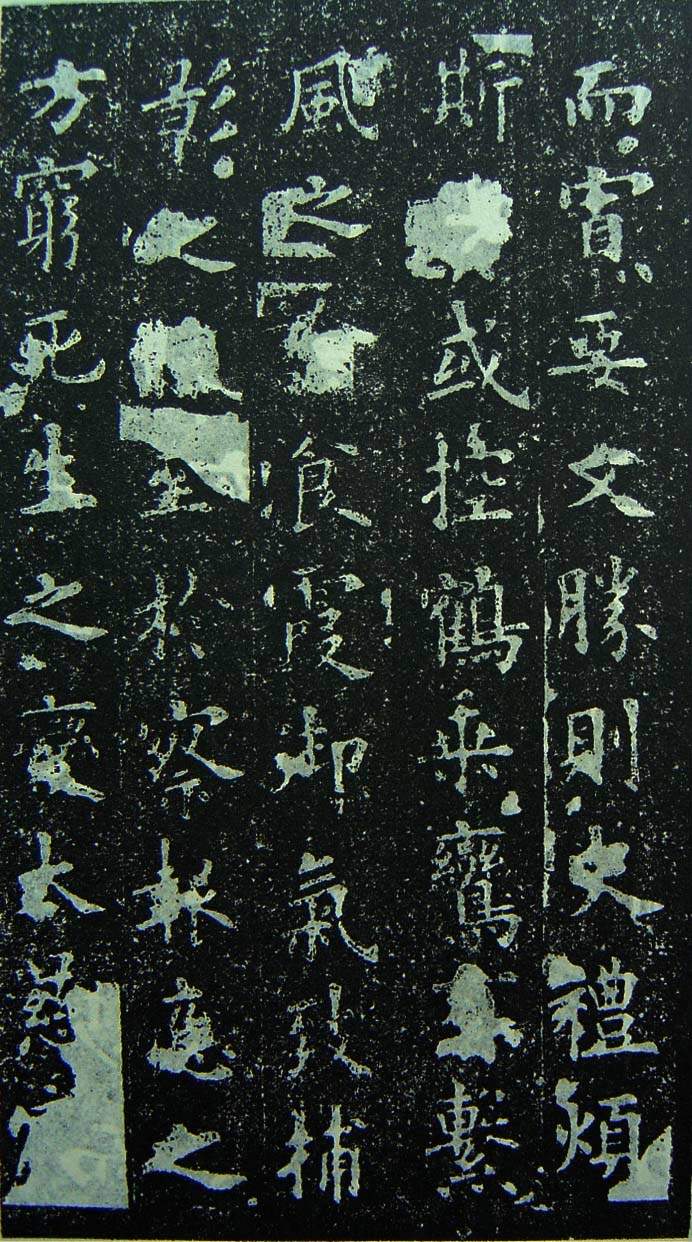 而寡要文勝則史禮煩
斯或控鶴乘鸞繫
風之飡霞御氣致捕
影之至於察報應之
方窮死生之變大慈